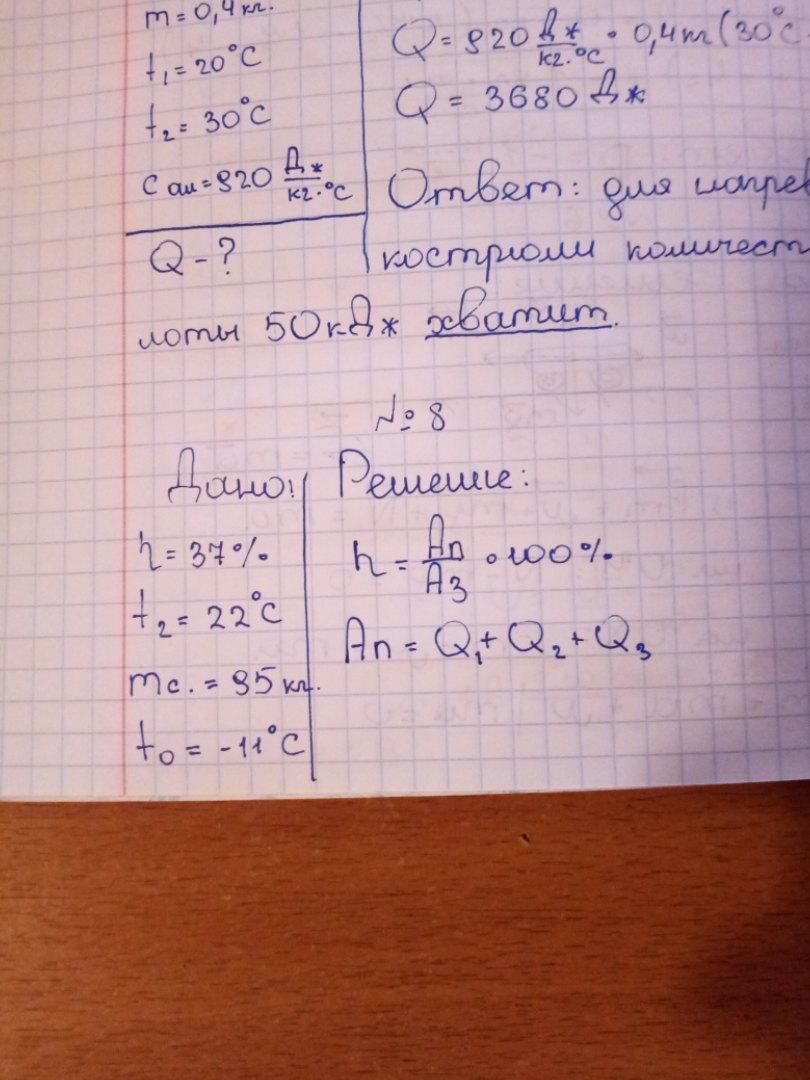 m = 0,4 кг.
t₁ = 20°C
t₂ = 30°C
c ал = 920 Дж/кг·°C
Q - ?
Q = 920 Дж/кг·°C · 0,4 кг (30°C
Q = 3680 Дж
Ответ: для нагрев
кострюли количест
лоты 50 кДж хватит.
№ 8
Дано:
η = 37%
t₂ = 22°C
mс. = 95 кг.
t₀ = -11°C
Решение:
η = Aп/Aз · 100%
Aп = Q₁ + Q₂ + Q₃